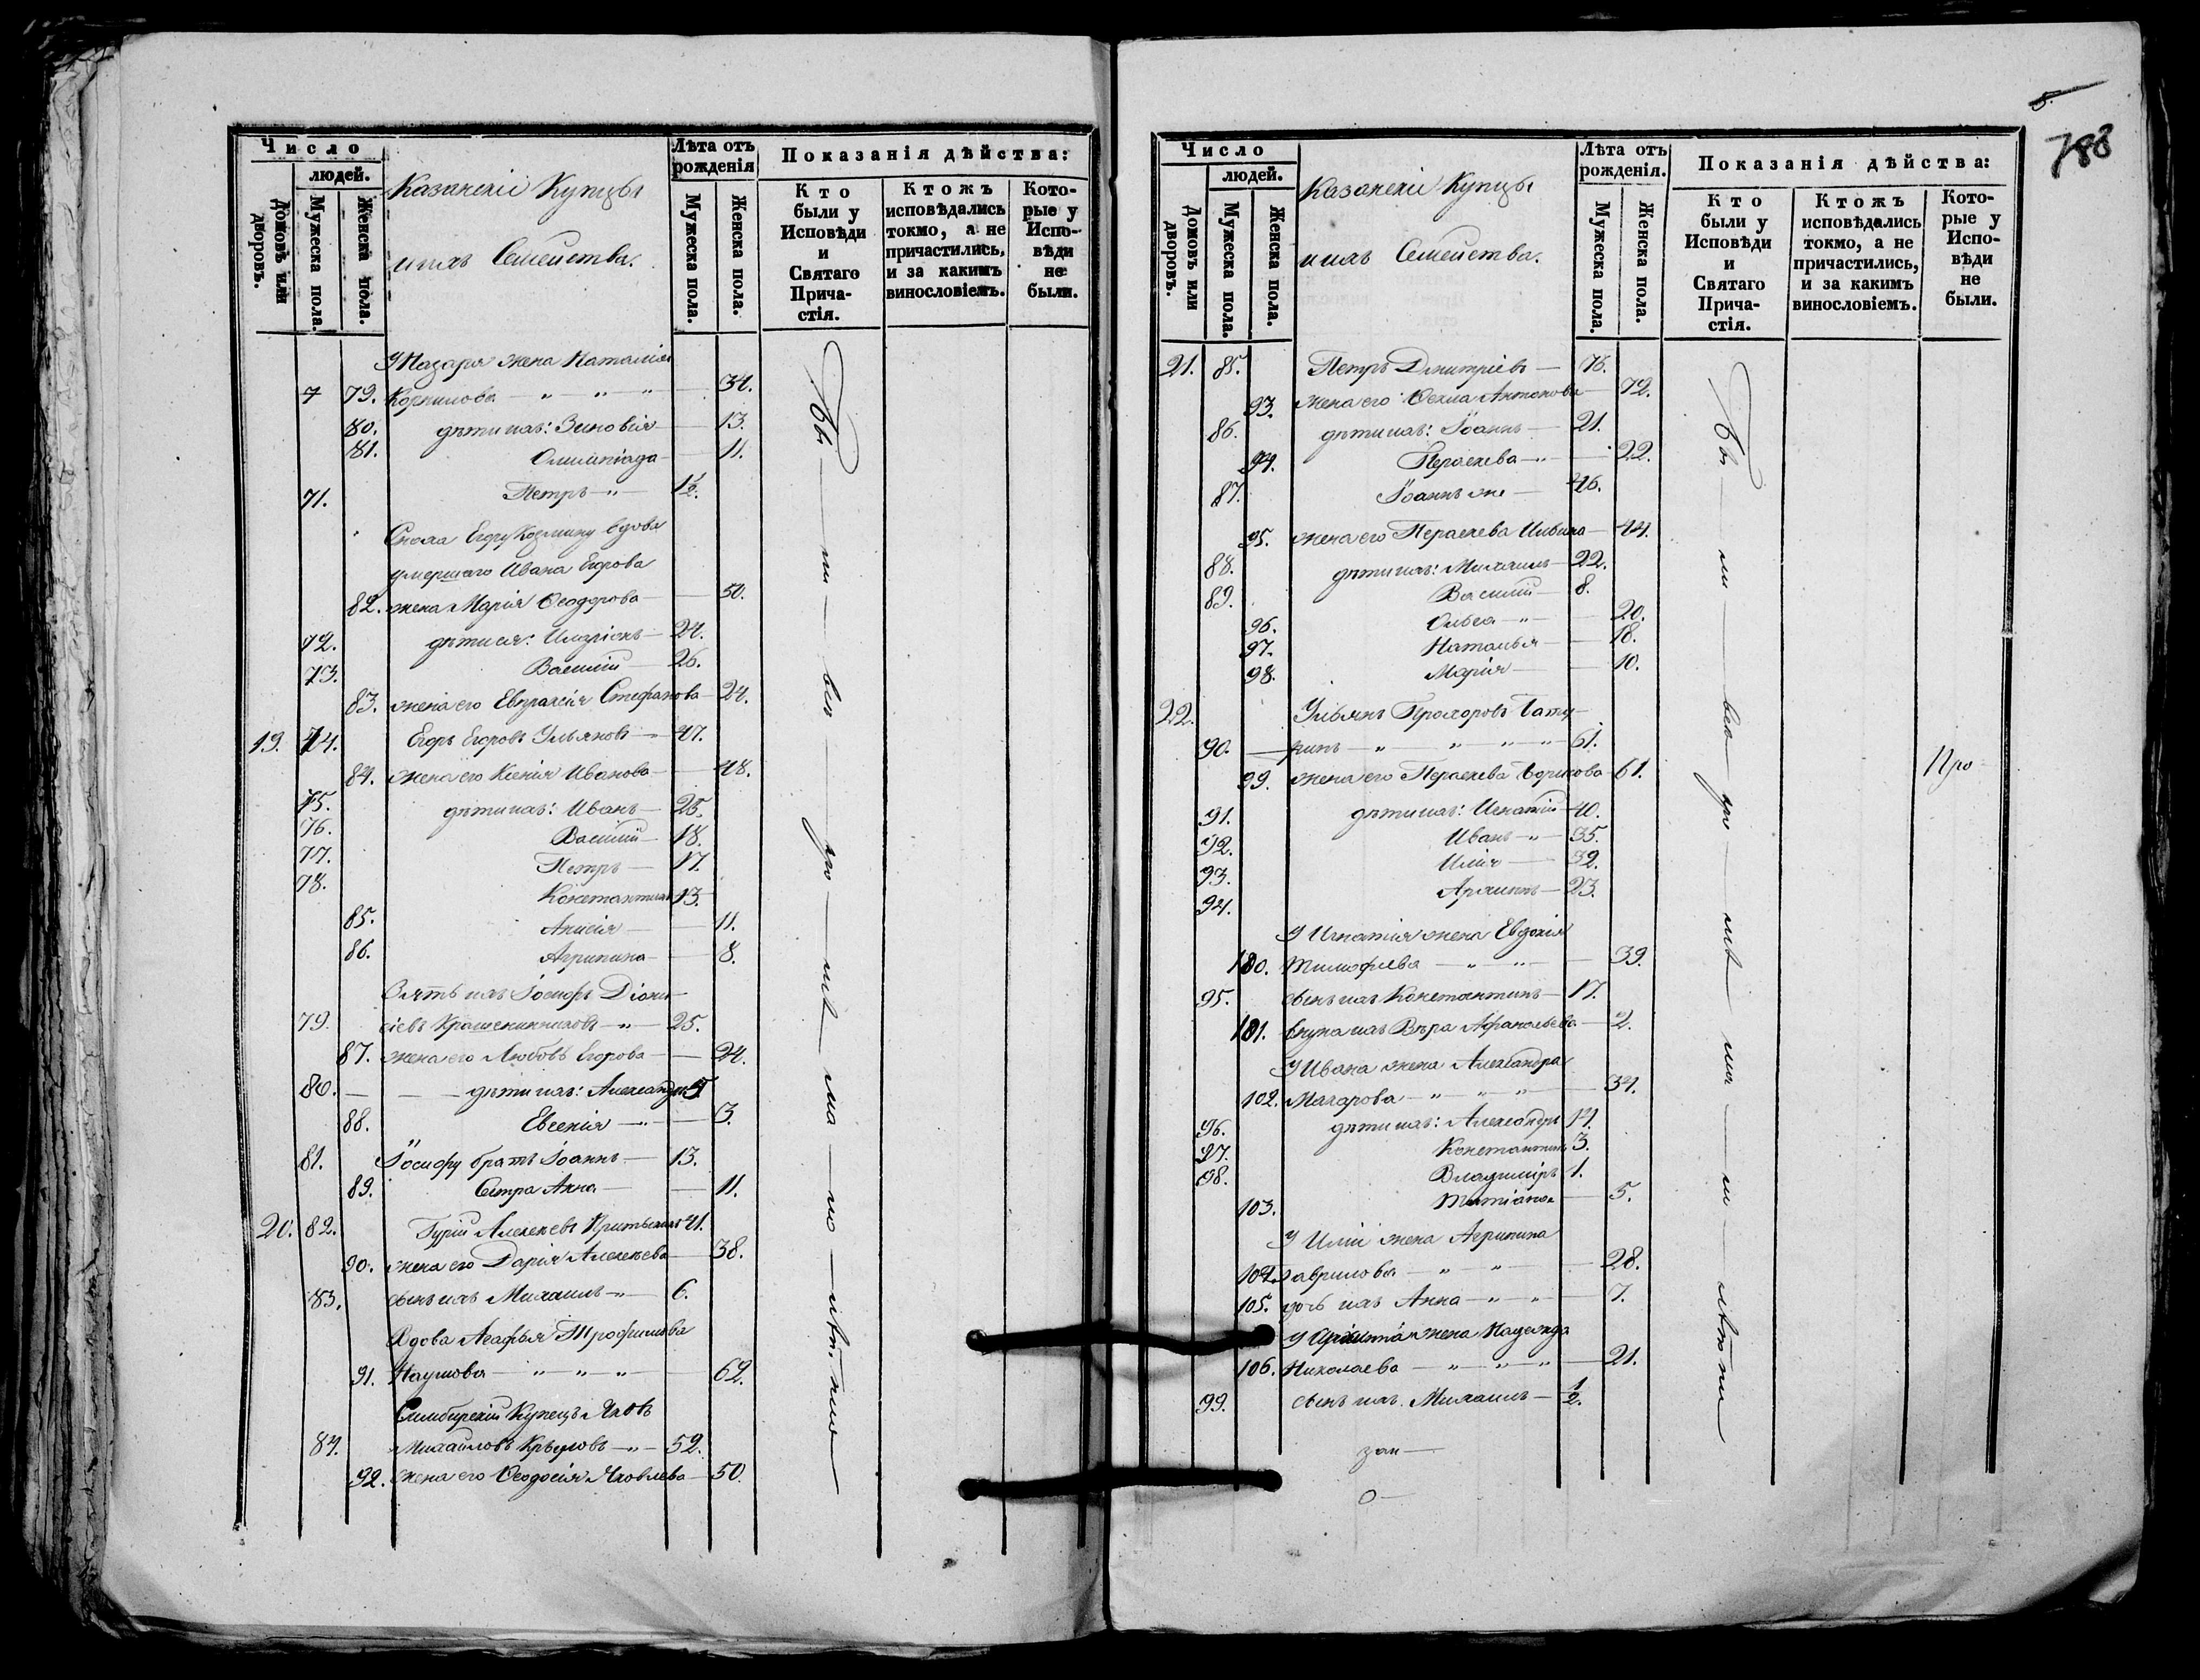 Число
людей.
Домовъ или дворовъ.
Мужеска пола.
Женска пола.
Казанскіе Купцы
и ихъ Семейства.
Лѣта отъ рожденія
Мужеска пола.
Женска пола.
Показанія дѣйства:
Кто были у Исповѣди и Святаго Причастія.
Ктожъ исповѣдались токмо, а не причастились, и за какимъ винословіемъ.
Которые у Исповѣди не были.
У Назара жена Наталія
7 79. Корнилова — " — " — " — 34.
80. дѣти ихъ: Зиновія — 13.
81. Олимпіада — 11.
71. Петръ — " — 1½.
Сноха Егору Козмину вдова
умершаго Ивана Егорова
82. жена Марія Ѳеодорова — 50.
72. дѣти ея: — 24.
73. Василій — 26.
83. жена его Евпраксія Стефанова — 24.
19. 74. Егоръ Егоровъ Ульяновъ — 47.
84. жена его Ксенія Иванова — 48.
75. дѣти ихъ: Иванъ — 25.
76. Василій — 18.
77. Петръ — 17.
78. Константинъ 13.
85. Анисія — 11.
86. Агрипина — 8.
Зять ихъ Іосифъ Діони-
79. сіевъ Крашенинниковъ — " — 25.
87. жена его Любовь Егорова — 24.
80. — — — дѣти ихъ: Александръ 5
88. Евгенія — " — 3.
81. Іосифу братъ Іоаннъ — 13.
89. Сестра Анна — 11.
20. 82. Гурій Алексѣевъ 41.
90. жена его Дарія Алексѣева — 38.
83. сынъ ихъ Михаилъ — " — 6.
Вдова Агафья Трофимова
91. Наумова — " — " — " — 62.
Симбирскій Купецъ Яковъ
84. Михайловъ — " — 52.
92. жена его Ѳеодосія Яковлева — 50.
5.
788
Число
людей.
Домовъ или дворовъ.
Мужеска пола.
Женска пола.
Казанскіе Купцы
и ихъ Семейства.
Лѣта отъ рожденія.
Мужеска пола.
Женска пола.
Показанія дѣйства:
Кто были у Исповѣди и Святаго Причастія.
Ктожъ исповѣдались токмо, а не причастились, и за какимъ винословіемъ.
Которые у Исповѣди не были.
21. 85. Петръ Дмитріевъ — 76.
93. жена его Ѳекла Антонова — 72.
86. дѣти ихъ: Іоаннъ — 21.
94. Параскева — " — 22.
87. Іоаннъ же — 46.
95. жена его Параскева Ильина — 44.
88. дѣти ихъ: Михаилъ — 22.
89. Василій — 8.
96. Ольга — " — 20.
97. Наталья — 18.
98. Марія — 10.
22. Ульянъ Прохоровъ Бату-
90. — ринъ — " — " — " — " 61.
99. жена его Параскева Борисова — 61.
Про
91. дѣти ихъ: Игнатій — 40.
92. Иванъ — " — 35.
93. Илія — 32.
94. Архиппъ — 23.
У Игнатія жена Евдокія
100. Тимофѣева — " — " — 39.
95. сынъ ихъ Константинъ — 17.
101. внука ихъ Вѣра Афанасьева — 2.
У Ивана жена Александра
102. Макарова — " — " — " — 34.
96. дѣти ихъ: Александръ 14.
97. Константинъ 3.
98. Владиміръ 1.
103. Татіана — 5.
У Иліи жена Агрипина
104. Гаврилова — " — " — 28.
105. дочь ихъ Анна — " — " — 7.
У Архиппа жена Надежда
106. Николаева — " — " — " — 21.
99. сынъ ихъ Михаилъ — ½.